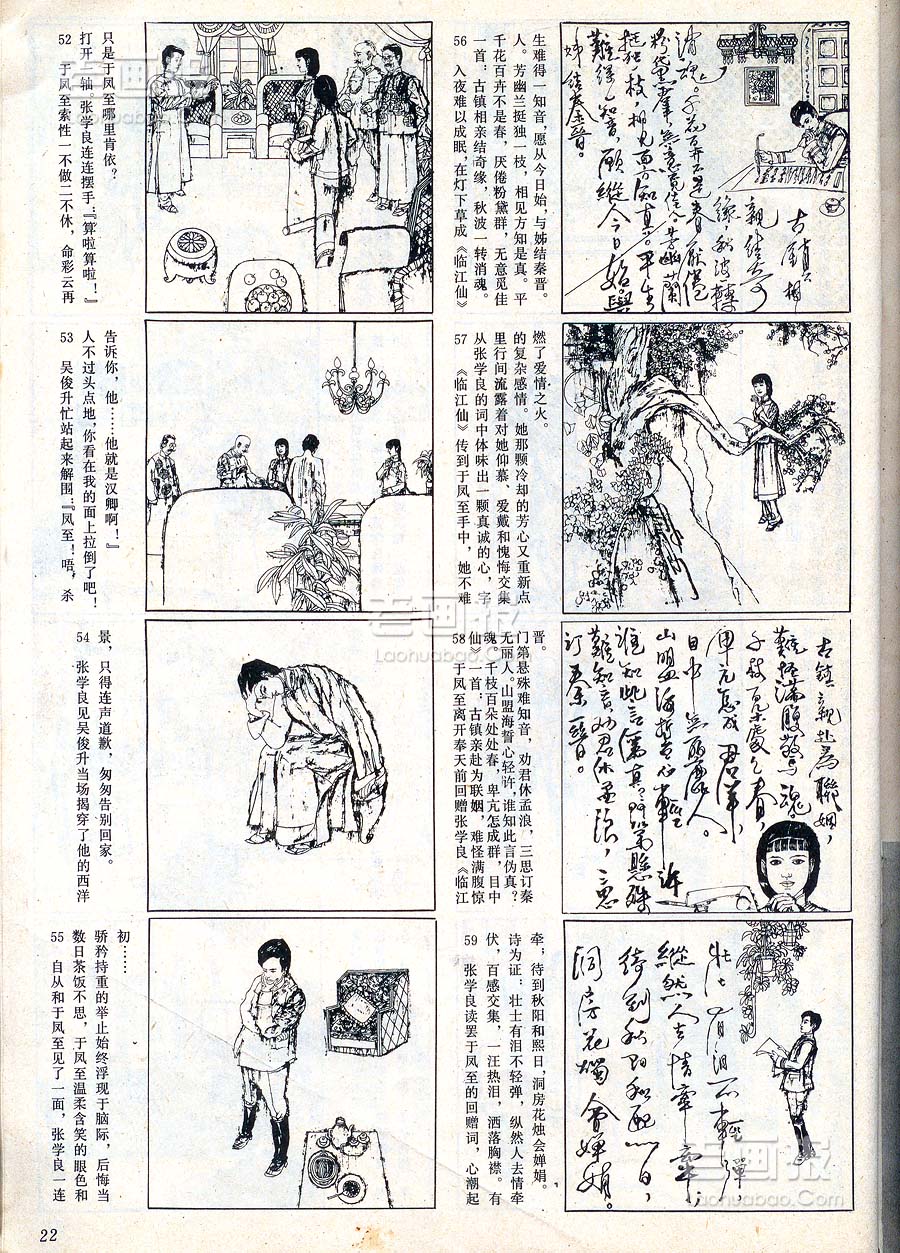 52 于凤至索性一不做二不休，命彩云再
打开一轴 张学良连连摆手：『算啦算啦！』
只是于凤至哪里肯依？
53 吴俊升忙站起来解围：『凤至！唔，杀
人不过头点地，你看在我的面上拉倒了吧！
告诉你，他……他就是汉卿啊！』
54 张学良见吴俊升当场揭穿了他的西洋
景，只得连声道歉，匆匆告别回家。
55 自从和于凤至见了一面，张学良一连
数日茶饭不思，于凤至温柔含笑的眼色和
骄矜持重的举止始终浮现于脑际，后悔当
初……
56 入夜难以成眠，在灯下草成《临江仙》
一首：古镇相亲结奇缘，秋波一转消魂。
千花百卉不是春，厌倦粉黛群，无意觅佳
人。芳幽兰挺独一枝，相见方知真。平
生难得一知音，愿从今日始，与姊结秦晋。
古鎮相
親結奇
緣，秋波一轉
消魂。千花百卉不是春，厭倦
粉黛羣，無意覓佳人。芳幽蘭
挺獨一枝，相見方知真。平生
難得一知音，願從今日始與
姊結秦晉。
57 《临江仙》传到于凤至手中，她不难
从张学良的词中体味出一颗真诚的心，字
里行间流露着对她仰慕、爱戴和愧悔交集
的复杂感情。她那颗冷却的芳心又重新点
燃了爱情之火。
58 于凤至离开奉天前回赠张学良《临江
仙》一首：古镇亲赴为联姻，难怪满腹惊
魂。千枝百朵处处春，卑亢怎成群，目中
无丽人。山盟海誓心轻许，谁知此言伪真？
门第悬殊难知音，劝君休孟浪，三思订秦
晋。
古鎮親赴爲聯姻，
難怪滿腹驚魂。
千枝百朵處處春，
卑亢怎成羣，
目中無麗人。
山盟海誓心輕許
誰知此言僞真？門第懸殊
難知音，勸君休孟浪，三思
訂秦晉。
59 张学良读罢于凤至的回赠词，心潮起
伏，百感交集，一汪热泪，洒落胸襟。有
诗为证：壮士有泪不轻弹，纵然人去情牵
牵，待到秋阳和熙日，洞房花烛会婵娟。
壯士有淚不輕彈，
縱然人去情牽牽；
待到秋陽和熙日，
洞房花燭會嬋娟。
22
老画报
Laohuabao.Com
老画报
Laohuabao.Com